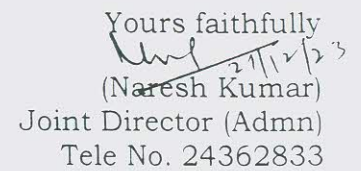 Yours faithfully
21/12/23
(Naresh Kumar)
Joint Director (Admn)
Tele No. 24362833